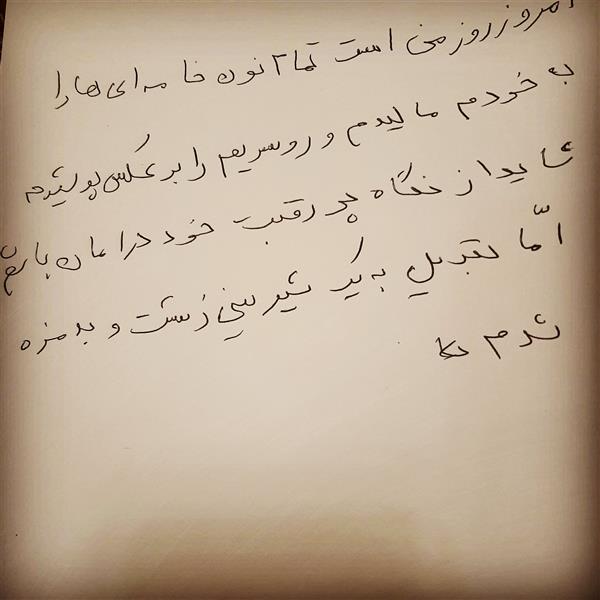 امروز روز من است تمام نون خامه ای ها را
به خودم مالیدم و روسریم را برعکس پوشیدم
شاید از نگاه پر رقبت خود در امان باشم
امّا تبدیل به یک شیرینی زشت و بدمزه
شدم